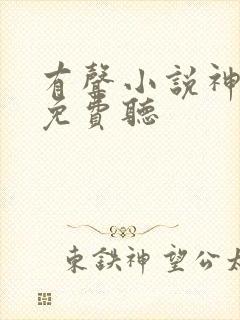 有聲小說神
免費聽
東鉄神望公太